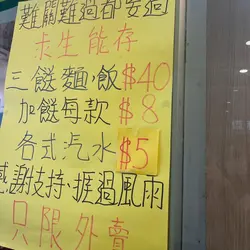 難關難過都要過
求生能存
三餸麵,飯$40
加餸每款$8
各式汽水$5
感謝支持、捱過風雨
只限外賣